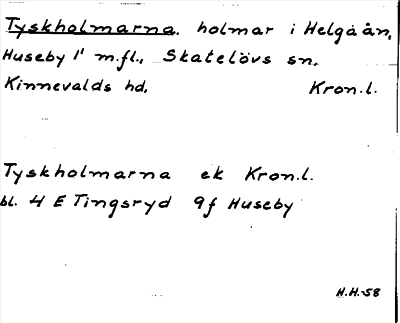 Tyskholmarna. holmar i Helgaån,
Huseby 1' m.fl., Skatelövs sn.
Kinnevalds hd. Kron.l.
Tyskholmarna ek Kron.l.
bl. 4 E Tingsryd 9f Huseby
H.H.-58